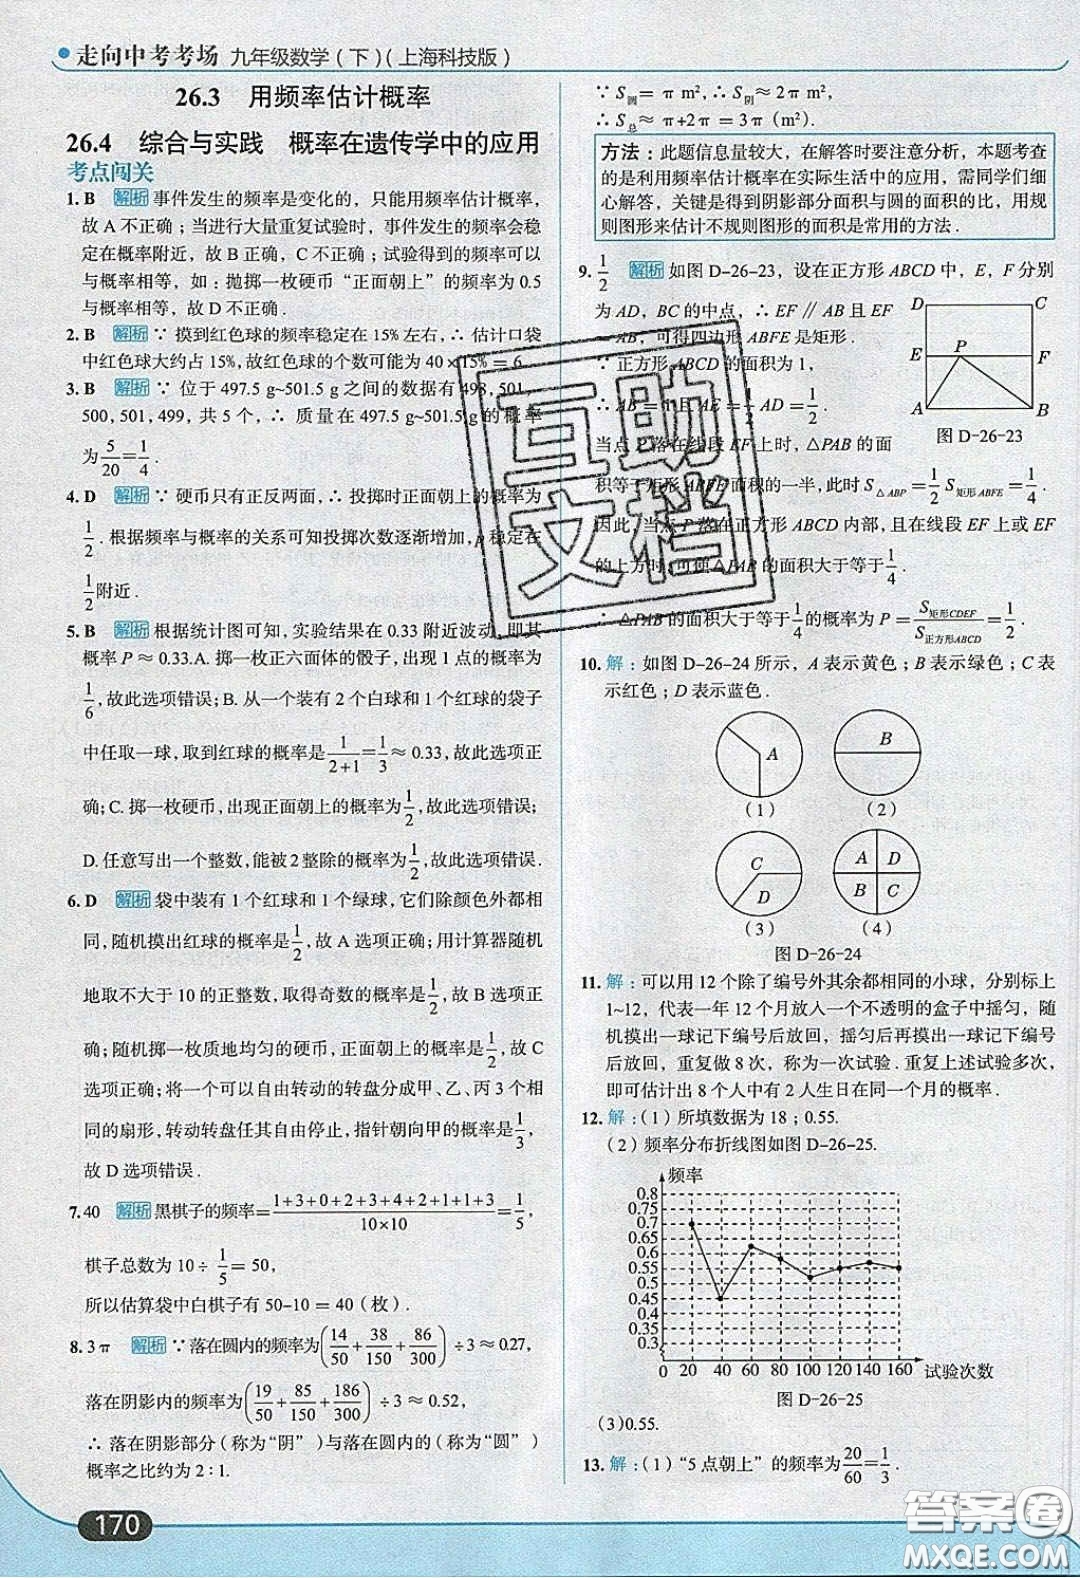 走向中考考场 九年级数学(下)(上海科技版)
26.3 用频率估计概率
26.4 综合与实践 概率在遗传学中的应用
考点闯关
1. B 解析 事件发生的频率是变化的，只能用频率估计概率，
故 A 不正确；当进行大量重复试验时，事件发生的频率会稳
定在概率附近，故 B 正确，C 不正确；试验得到的频率可以
与概率相等，如：抛掷一枚硬币“正面朝上”的频率为 0.5
与概率相等，故 D 不正确.
2. B 解析 ∵ 摸到红色球的频率稳定在 15% 左右，∴ 估计口袋
中红色球大约占 15%，故红色球的个数可能为 40×15% = 6.
3. B 解析 ∵ 位于 497.5 g~501.5 g 之间的数据有 498, 501,
500, 501, 499，共 5 个，∴ 质量在 497.5 g~501.5 g 的概率
为 5/20 = 1/4.
4. D 解析 ∵ 硬币只有正反两面，∴ 投掷时正面朝上的概率为
1/2. 根据频率与概率的关系可知投掷次数逐渐增加，p 稳定在
1/2 附近.
5. B 解析 根据统计图可知，实验结果在 0.33 附近波动，即其
概率 P ≈ 0.33. A. 掷一枚正六面体的骰子，出现 1 点的概率为
1/6，故此选项错误；B. 从一个装有 2 个白球和 1 个红球的袋子
中任取一球，取到红球的概率是 1/(2+1) = 1/3 ≈ 0.33，故此选项正
确；C. 掷一枚硬币，出现正面朝上的概率为 1/2，故此选项错误；
D. 任意写出一个整数，能被 2 整除的概率为 1/2，故此选项错误.
6. D 解析 袋中装有 1 个红球和 1 个绿球，它们除颜色外都相
同，随机摸出红球的概率是 1/2，故 A 选项正确；用计算器随机
地取不大于 10 的正整数，取得奇数的概率为 1/2，故 B 选项正
确；随机掷一枚质地均匀的硬币，正面朝上的概率为 1/2，故 C
选项正确；将一个可以自由转动的转盘分成甲、乙、丙 3 个相
同的扇形，转动转盘任其自由停止，指针朝向甲的概率是 1/3，
故 D 选项错误.
7. 40 解析 黑棋子的频率 = (1+3+0+2+3+4+2+1+1+3)/(10×10) = 1/5，
棋子总数为 10 ÷ 1/5 = 50，
所以估算袋中白棋子有 50-10 = 40（枚）.
8. 3π 解析 ∵ 落在圆内的频率为 (14/50 + 38/150 + 86/300) ÷ 3 ≈ 0.27,
落在阴影内的频率为 (19/50 + 85/150 + 186/300) ÷ 3 ≈ 0.52,
∴ 落在阴影部分（称为“阴”）与落在圆内的（称为“圆”）
概率之比约为 2 : 1.
170
∵ S圆 = π m², ∴ S阴 ≈ 2π m².
∴ S总 ≈ π+2π = 3π（m²）.
方法：此题信息量较大，在解答时要注意分析，本题考查
的是利用频率估计概率在实际生活中的应用，需同学们细
心解答，关键是得到阴影部分面积与圆的面积的比，用规
则图形来估计不规则图形的面积是常用的方法.
9. 1/2 解析 如图 D-26-23，设在正方形 ABCD 中，E，F 分别
为 AD，BC 的中点，∴ EF ∥ AB 且 EF
= AB，可得四边形 ABFE 是矩形.
∵ 正方形 ABCD 的面积为 1，
∴ AB = 1 且 AE = 1/2 AD = 1/2.
当点 P 落在线段 EF 上时，△PAB 的面
积等于矩形 ABFE 面积的一半，此时 S△ABP = 1/2 S矩形ABFE = 1/4.
因此，当点 P 落在正方形 ABCD 内部，且在线段 EF 上或 EF
的上方时，可使△PAB 的面积大于等于 1/4.
∴ △PAB 的面积大于等于 1/4 的概率为 P = S矩形CDEF/S正方形ABCD = 1/2.
D C
E P F
A B
图 D-26-23
10. 解：如图 D-26-24 所示，A 表示黄色；B 表示绿色；C 表
示红色；D 表示蓝色.
A B
(1) (2)
C D A D B C
(3) (4)
图 D-26-24
11. 解：可以用 12 个除了编号外其余都相同的小球，分别标上
1~12，代表一年 12 个月放入一个不透明的盒子中摇匀，随
机摸出一球记下编号后放回，摇匀后再摸出一球记下编号
后放回，重复做 8 次，称为一次试验. 重复上述试验多次，
即可估计出 8 个人中有 2 人生日在同一个月的概率.
12. 解：(1) 所填数据为 18；0.55.
(2) 频率分布折线图如图 D-26-25.
频率
0.8
0.75
0.7
0.65
0.6
0.55
0.5
0.45
0.4
0.35
0.3
0 20 40 60 80 100 120 140 160 试验次数
图 D-26-25
(3) 0.55.
13. 解：(1) “5 点朝上”的频率为 20/60 = 1/3.
互助
文档
答案圈
MXQE.COM